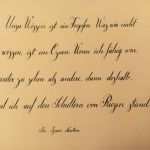 Unser Wissen ist ein Tropfen. Was wir nicht
wissen, ist ein Ozean. Wenn ich fähig war,
weiter zu sehen als andere, dann deshalb,
weil ich auf den Schultern von Riesen stand.
Sir Isaac Newton